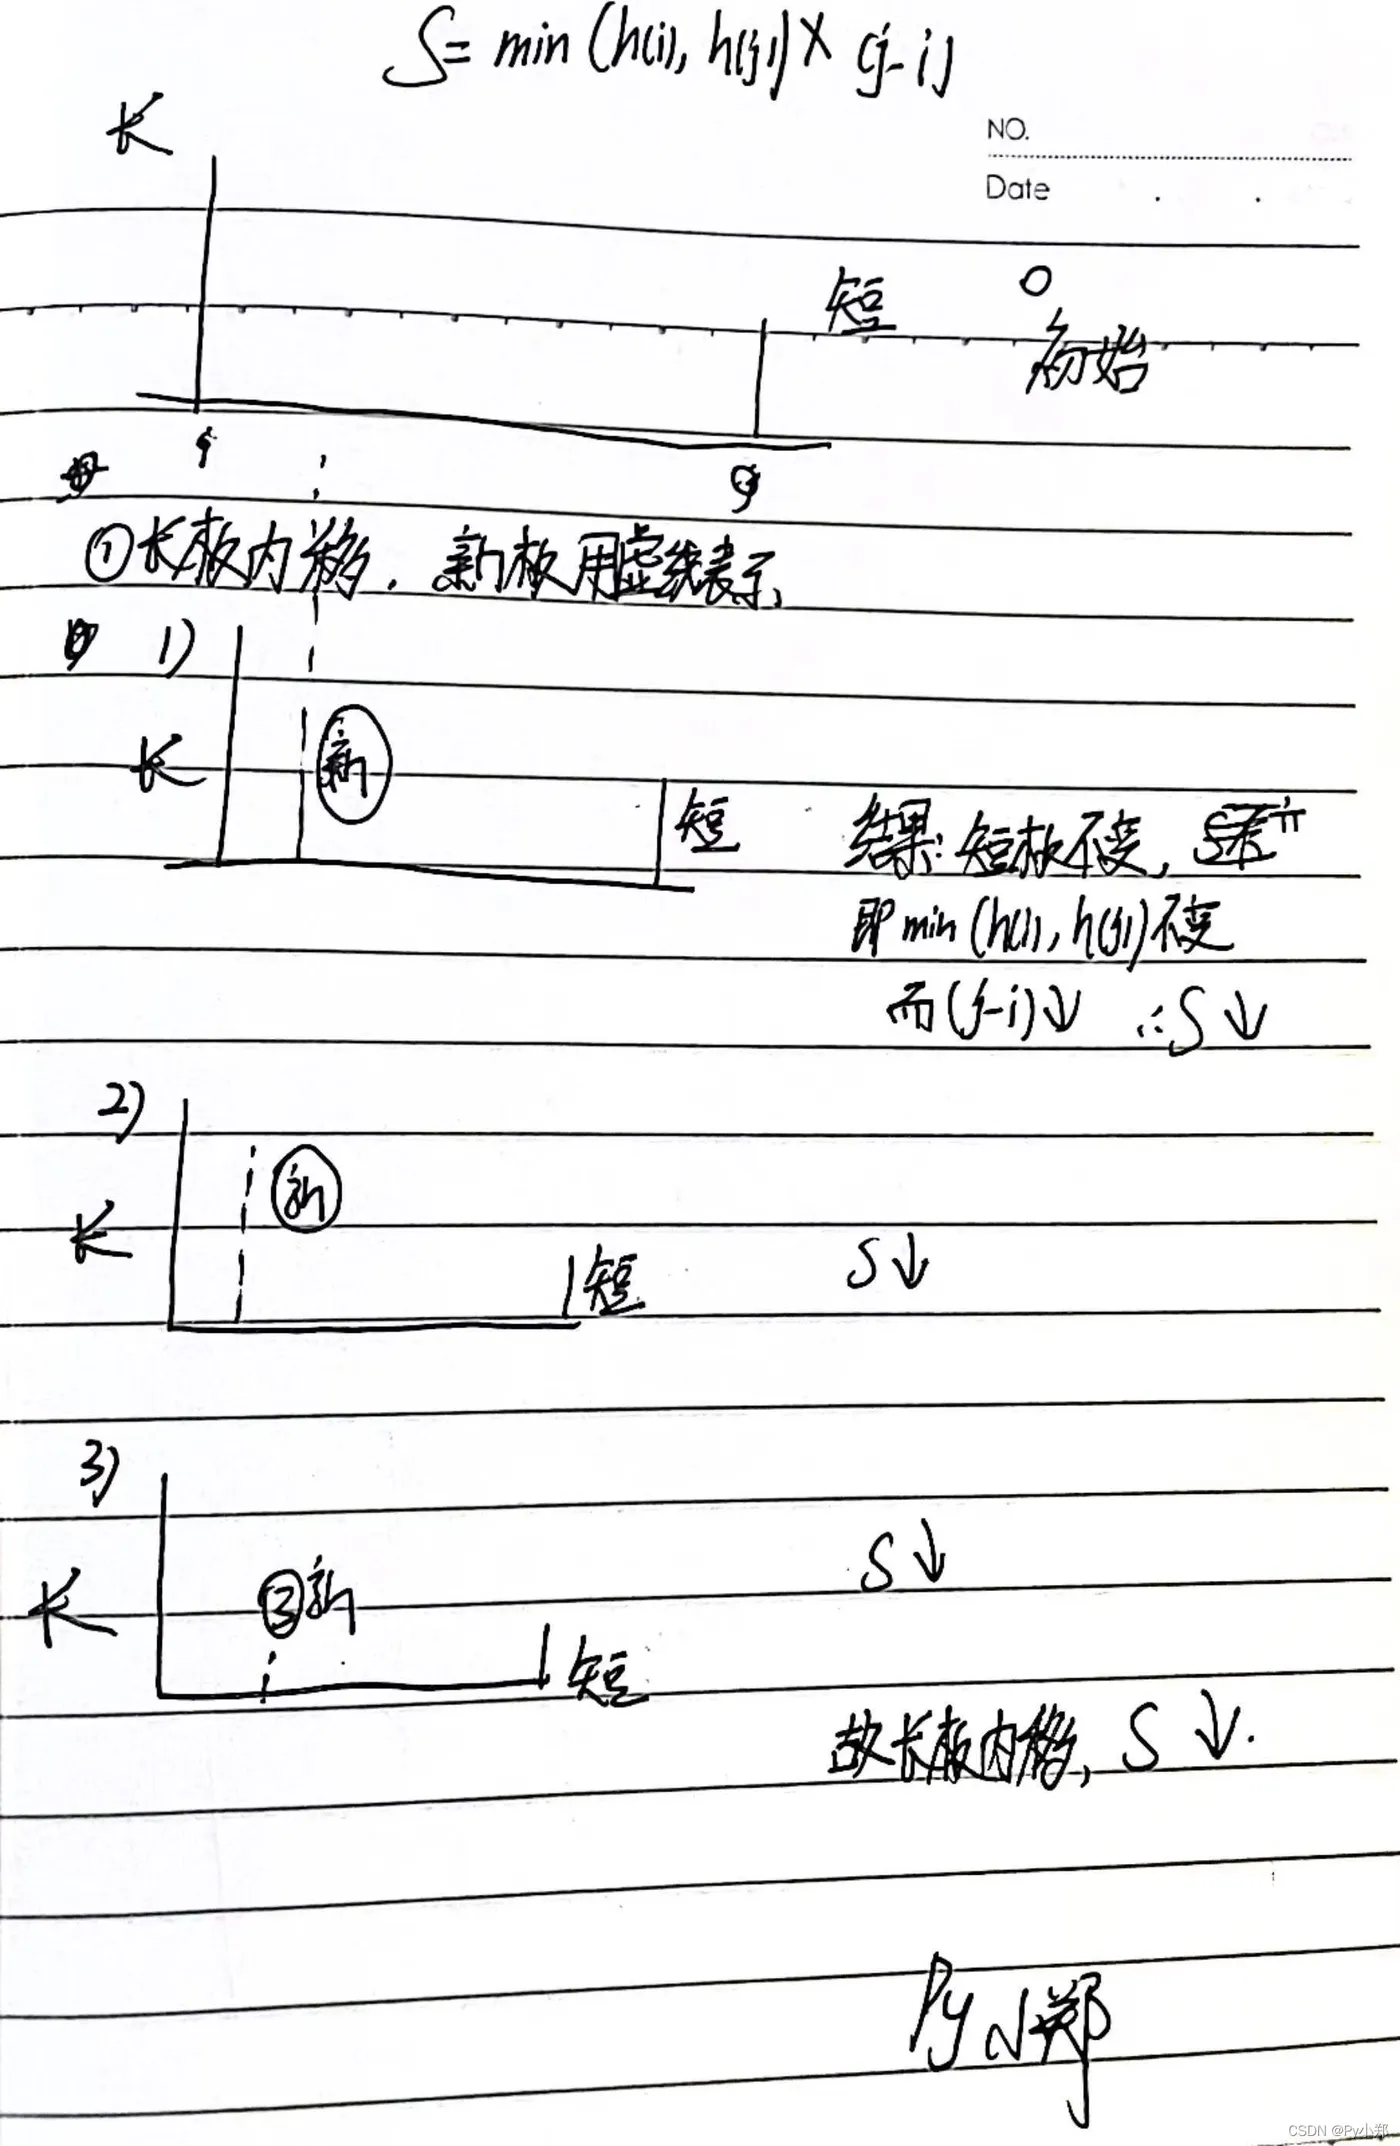 S= min (h(i), h(j))× (j-i)
NO.
Date
长
短
0
初始
①长板内移. 新板用虚线表示,
1)
长
新
短
结果:短板不变,
即min (h(i), h(j))不变
而(j-i)↓ ∴S↓
2)
新
长
短
S↓
3)
S↓
新
长
短
故长板内移, S ↓.
Py小郑
CSDN @Py小郑